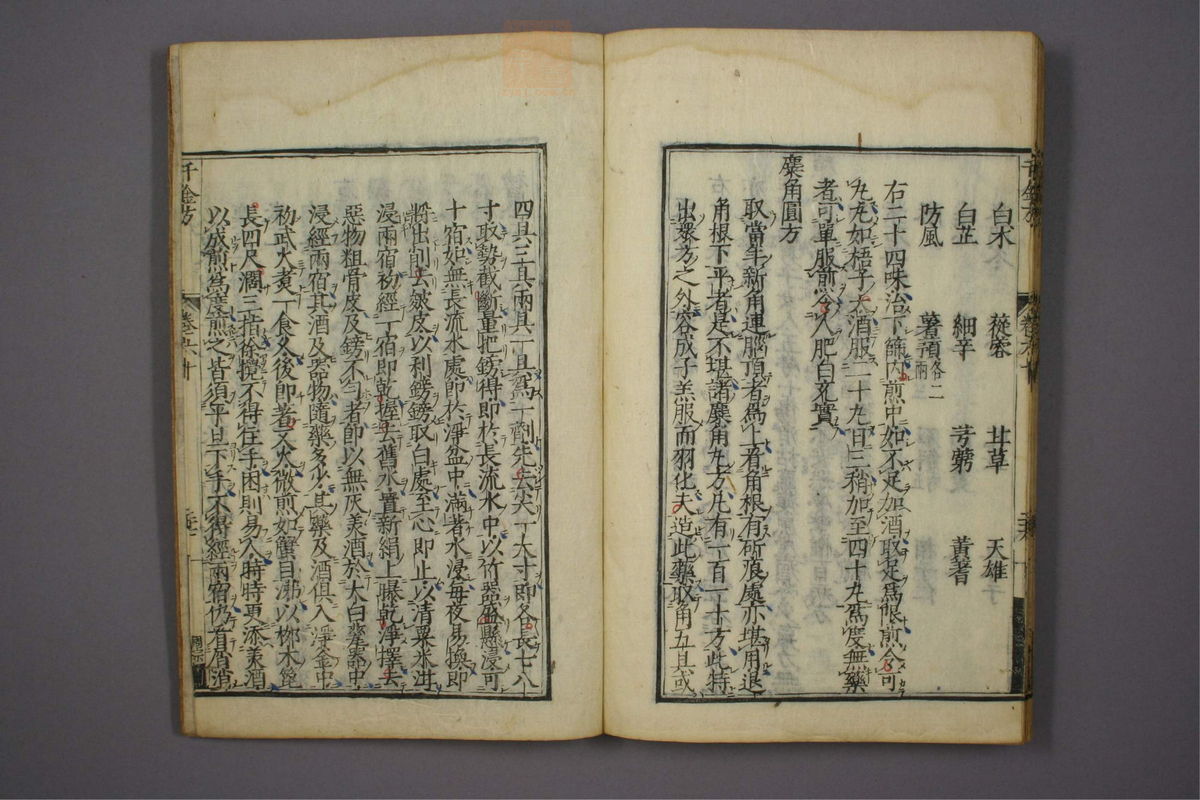 白朮 蓯蓉 甘草 天雄
白芷 細辛 芎藭 黃耆
防風 薯蕷各二兩
右二十四味治下篩内煎中如不足加酒取足爲限煎令可
丸丸如梧子大酒服二十丸日三稍加至四十丸爲度無藥
者可單服煎令人肥白充實
麋角圓方
取當年新角連腦頂者爲上看角根有斫痕處亦堪用退
角根下平者是不堪諸麋角丸方凡有一百一十方此特
出衆方之外容成子羔服而羽化夫造此藥取角五具或
四具三具兩具一具爲一劑先去尖一大寸即各長七八
寸取勢截斷量把鎊得即於長流水中以竹器盛懸浸可
十宿如無長流水處即於淨盆中滿著水浸每夜易換即
將出削去皴皮以利鎊鎊取白處至心即止以清粟米泔
浸兩宿初經一宿即乾握去舊水置新絹上曝乾淨擇去
惡物粗骨皮及鎊不匀者即以無灰美酒於大白甆器中
浸經兩宿其酒及器物隨藥多少其藥及酒俱入淨釜中
初武火煮一食久後即著文火微煎如蟹目沸以柳木篦
長四尺濶三指徐攪不得住手困則易人時時更添美酒
以成煎爲度煎之皆須平旦下手不得經兩宿仍看屑消
千金方 卷六十